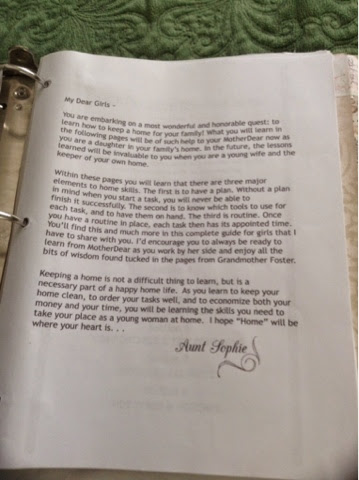 My Dear Girls -
You are embarking on a most wonderful and honorable quest: to
learn how to keep a home for your family! What you will learn in
the following pages will be of such help to your MotherDear now as
you are a daughter in your family's home. In the future, the lessons
learned will be invaluable to you when you are a young wife and the
keeper of your own home.
Within these pages you will learn that there are three major
elements to home skills. The first is to have a plan. Without a plan
in mind when you start a task, you will never be able to
finish it successfully. The second is to know which tools to use for
each task, and to have them on hand. The third is routine. Once
you have a routine in place, each task then has its appointed time.
You'll find this and much more in this complete guide for girls that I
have to share with you. I'd encourage you to always be ready to
learn from MotherDear as you work by her side and enjoy all the
bits of wisdom found tucked in the pages from Grandmother Foster.
Keeping a home is not a difficult thing to learn, but is a
necessary part of a happy home life. As you learn to keep your
home clean, to order your tasks well, and to economize both your
money and your time, you will be learning the skills you need to
take your place as a young woman at home. I hope "Home" will be
where your heart is. . .
Aunt Sophie